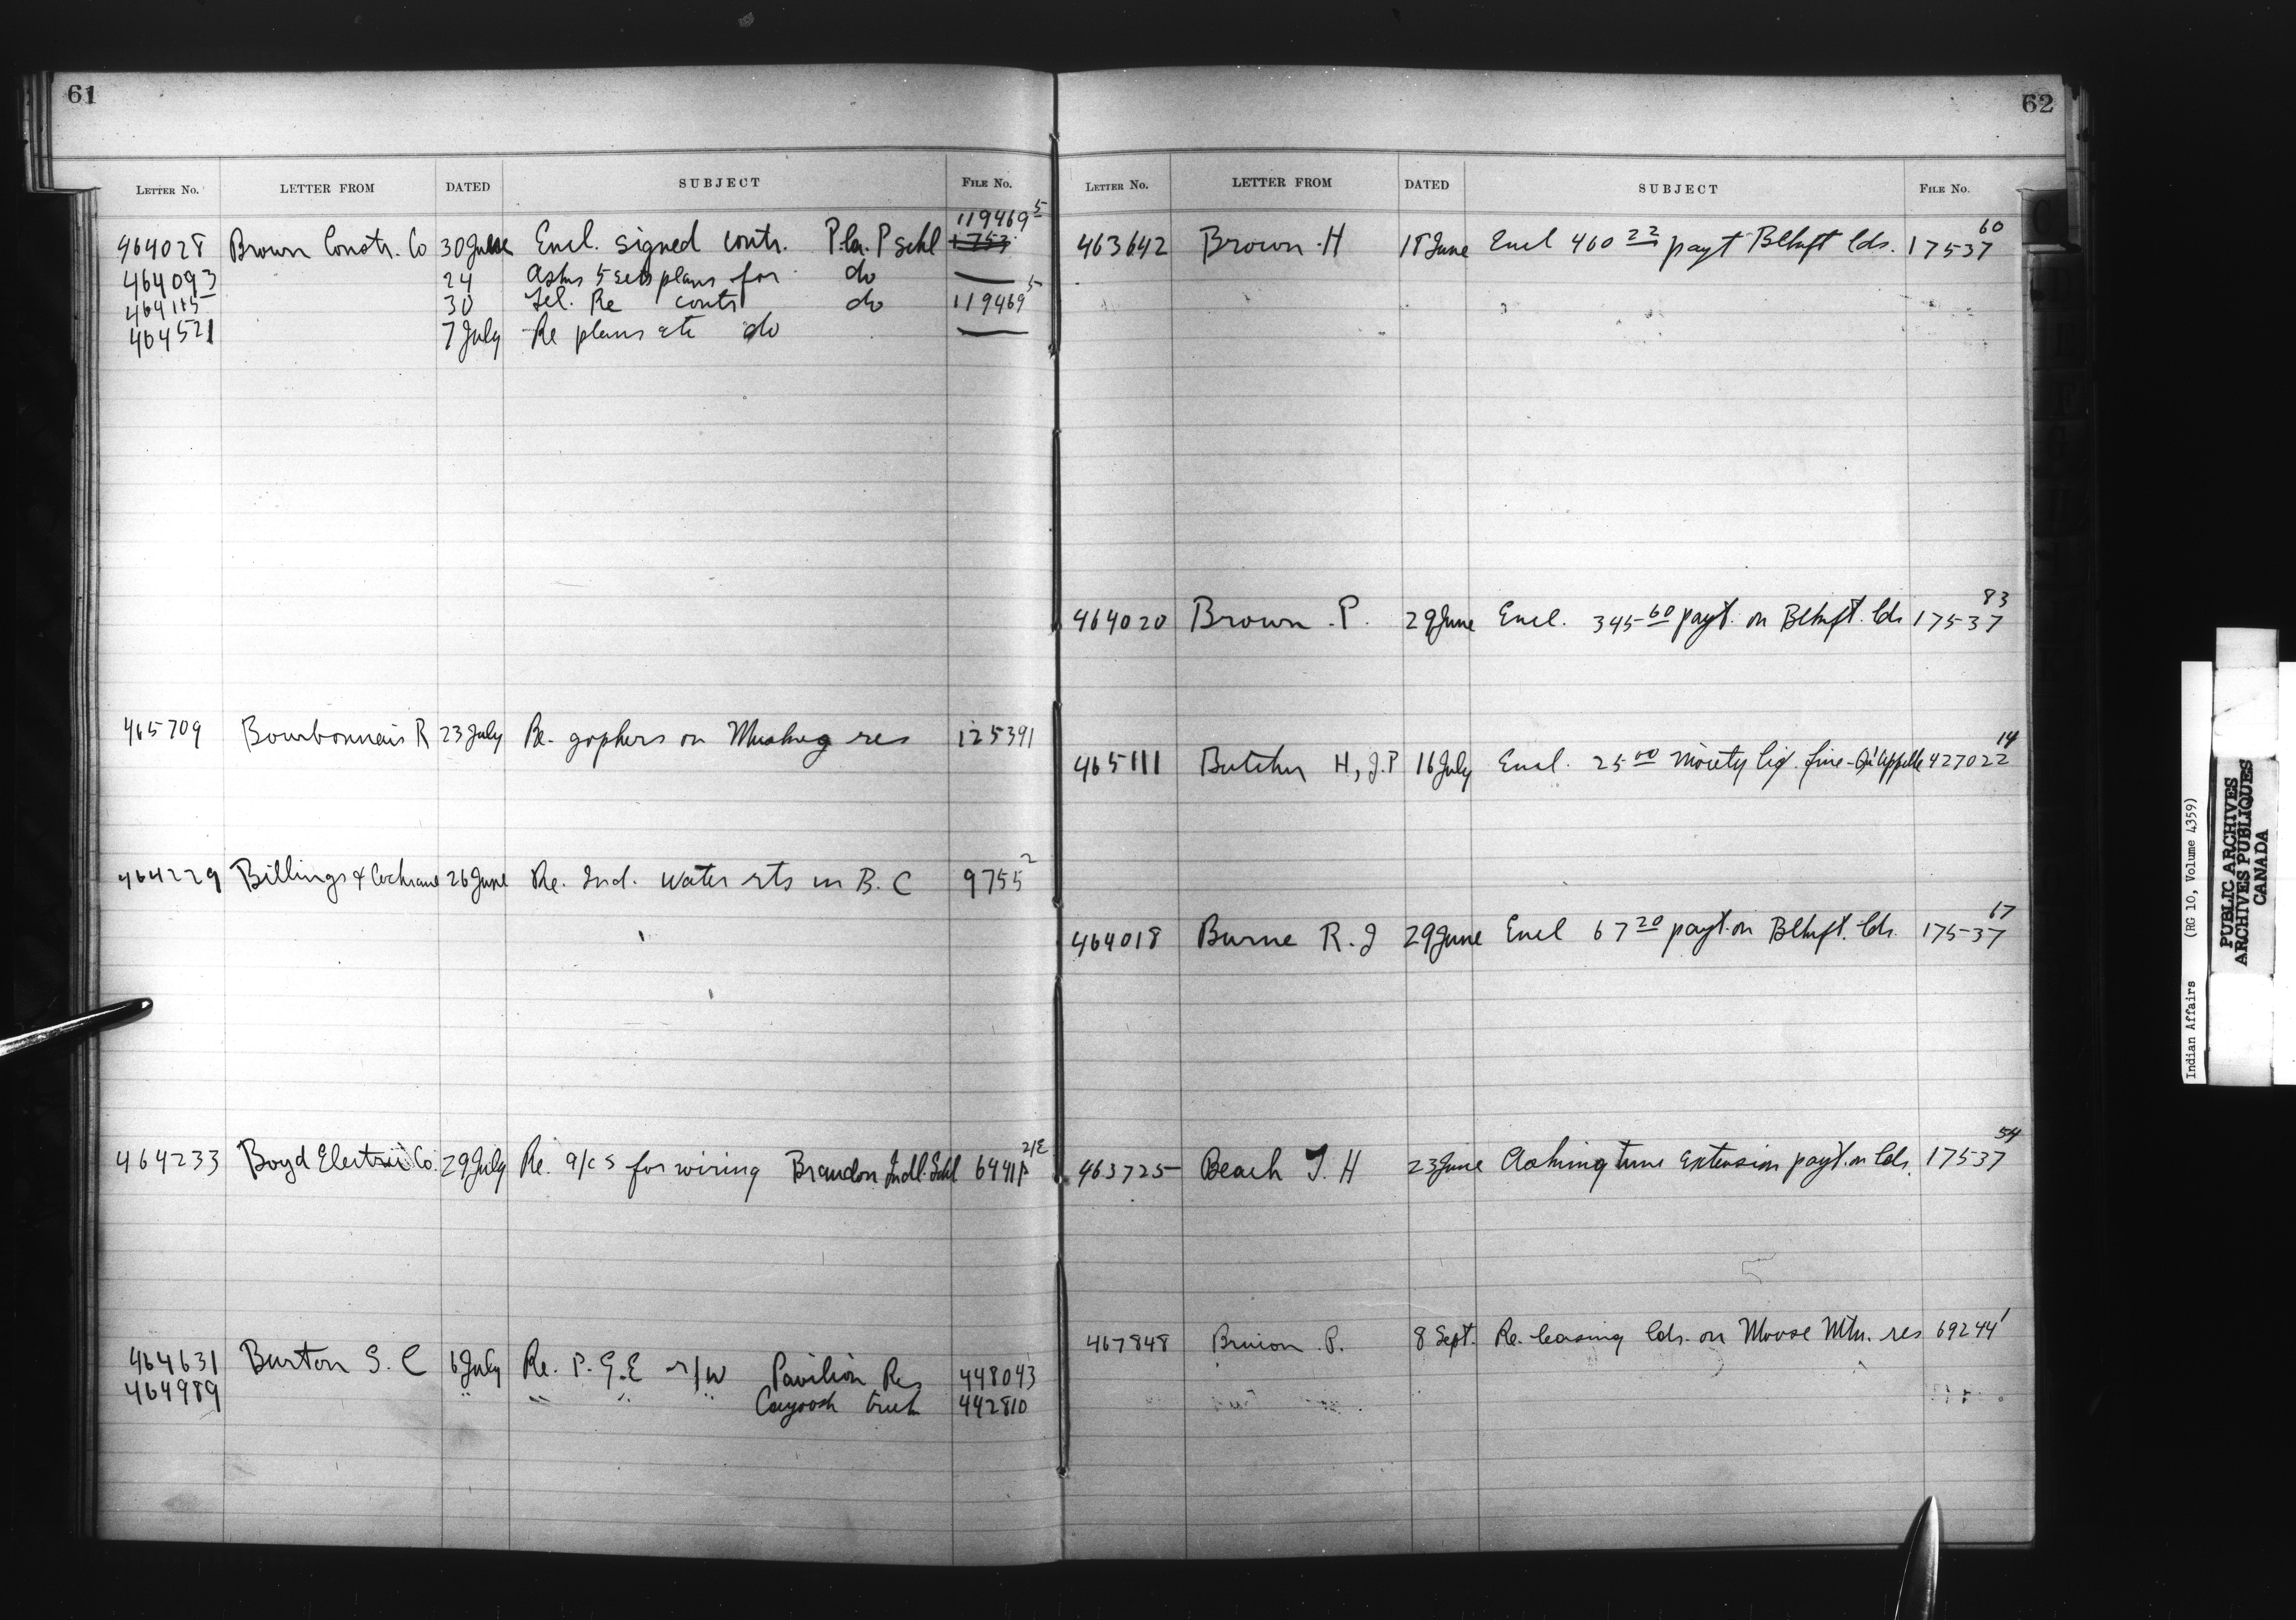 61
LETTER No. LETTER FROM DATED SUBJECT FILE No.
464028 Brown Constr. Co 30 June Encl. signed contr. P. la. P schl 119469 5
464093 24 Asks 5 sets plans for do —
464115 30 Tel. Re contr do 119469 5
464521 7 July Re plans etc do —
465709 Bourbonnais R 23 July Re. gophers on Muskeg res 125391
464229 Billings & Cochrane 26 June Re. Ind. water rts in B.C 9755 2
464233 Boyd Electric Co. 29 July Re. a/cs for wiring Brandon Indl. Schl 64411 2/E
464631 Burton S. C 6 July Re. P. G. E r/w Pavilion Res 448043
464989 " " " " Cayoosh Creek 442810
62
LETTER No. LETTER FROM DATED SUBJECT FILE No.
463642 Brown H 18 June Encl 460 22 payt Blkft lds. 17537 60
464020 Brown P. 29 June Encl. 345 60 payt. on Blkft. lds 17537 83
465111 Butcher H, J.P 16 July Encl. 25 00 moiety liq. fine - Qu'Appelle 427022 14
464018 Burne R. J 29 June Encl 67 20 payt. on Blkft. lds. 17537 67
463725 Beach T. H 23 June Asking time extension payt. on lds. 17537 54
467848 P. 8 Sept. Re. leasing lds. on Moose Mtn. res 69244 1
Indian Affairs (RG 10, Volume 4359)
PUBLIC ARCHIVES
ARCHIVES PUBLIQUES
CANADA